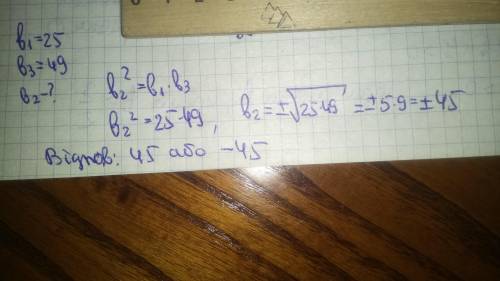 b₁=25
b₃=49
b₂-?
b₂²=b₁·b₃
b₂²=25·49, b₂=±√25·49=±5·9=±45
Відпов: 45 або -45